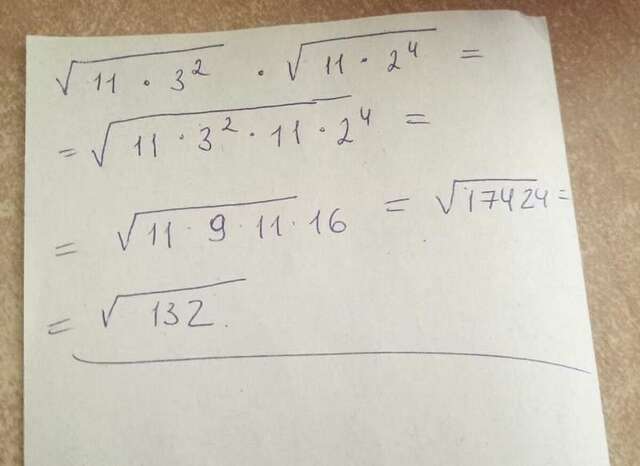 √11 · 3² · √11 · 2⁴ =
= √11 · 3² · 11 · 2⁴ =
= √11 · 9 · 11 · 16 = √17424 =
= √132.